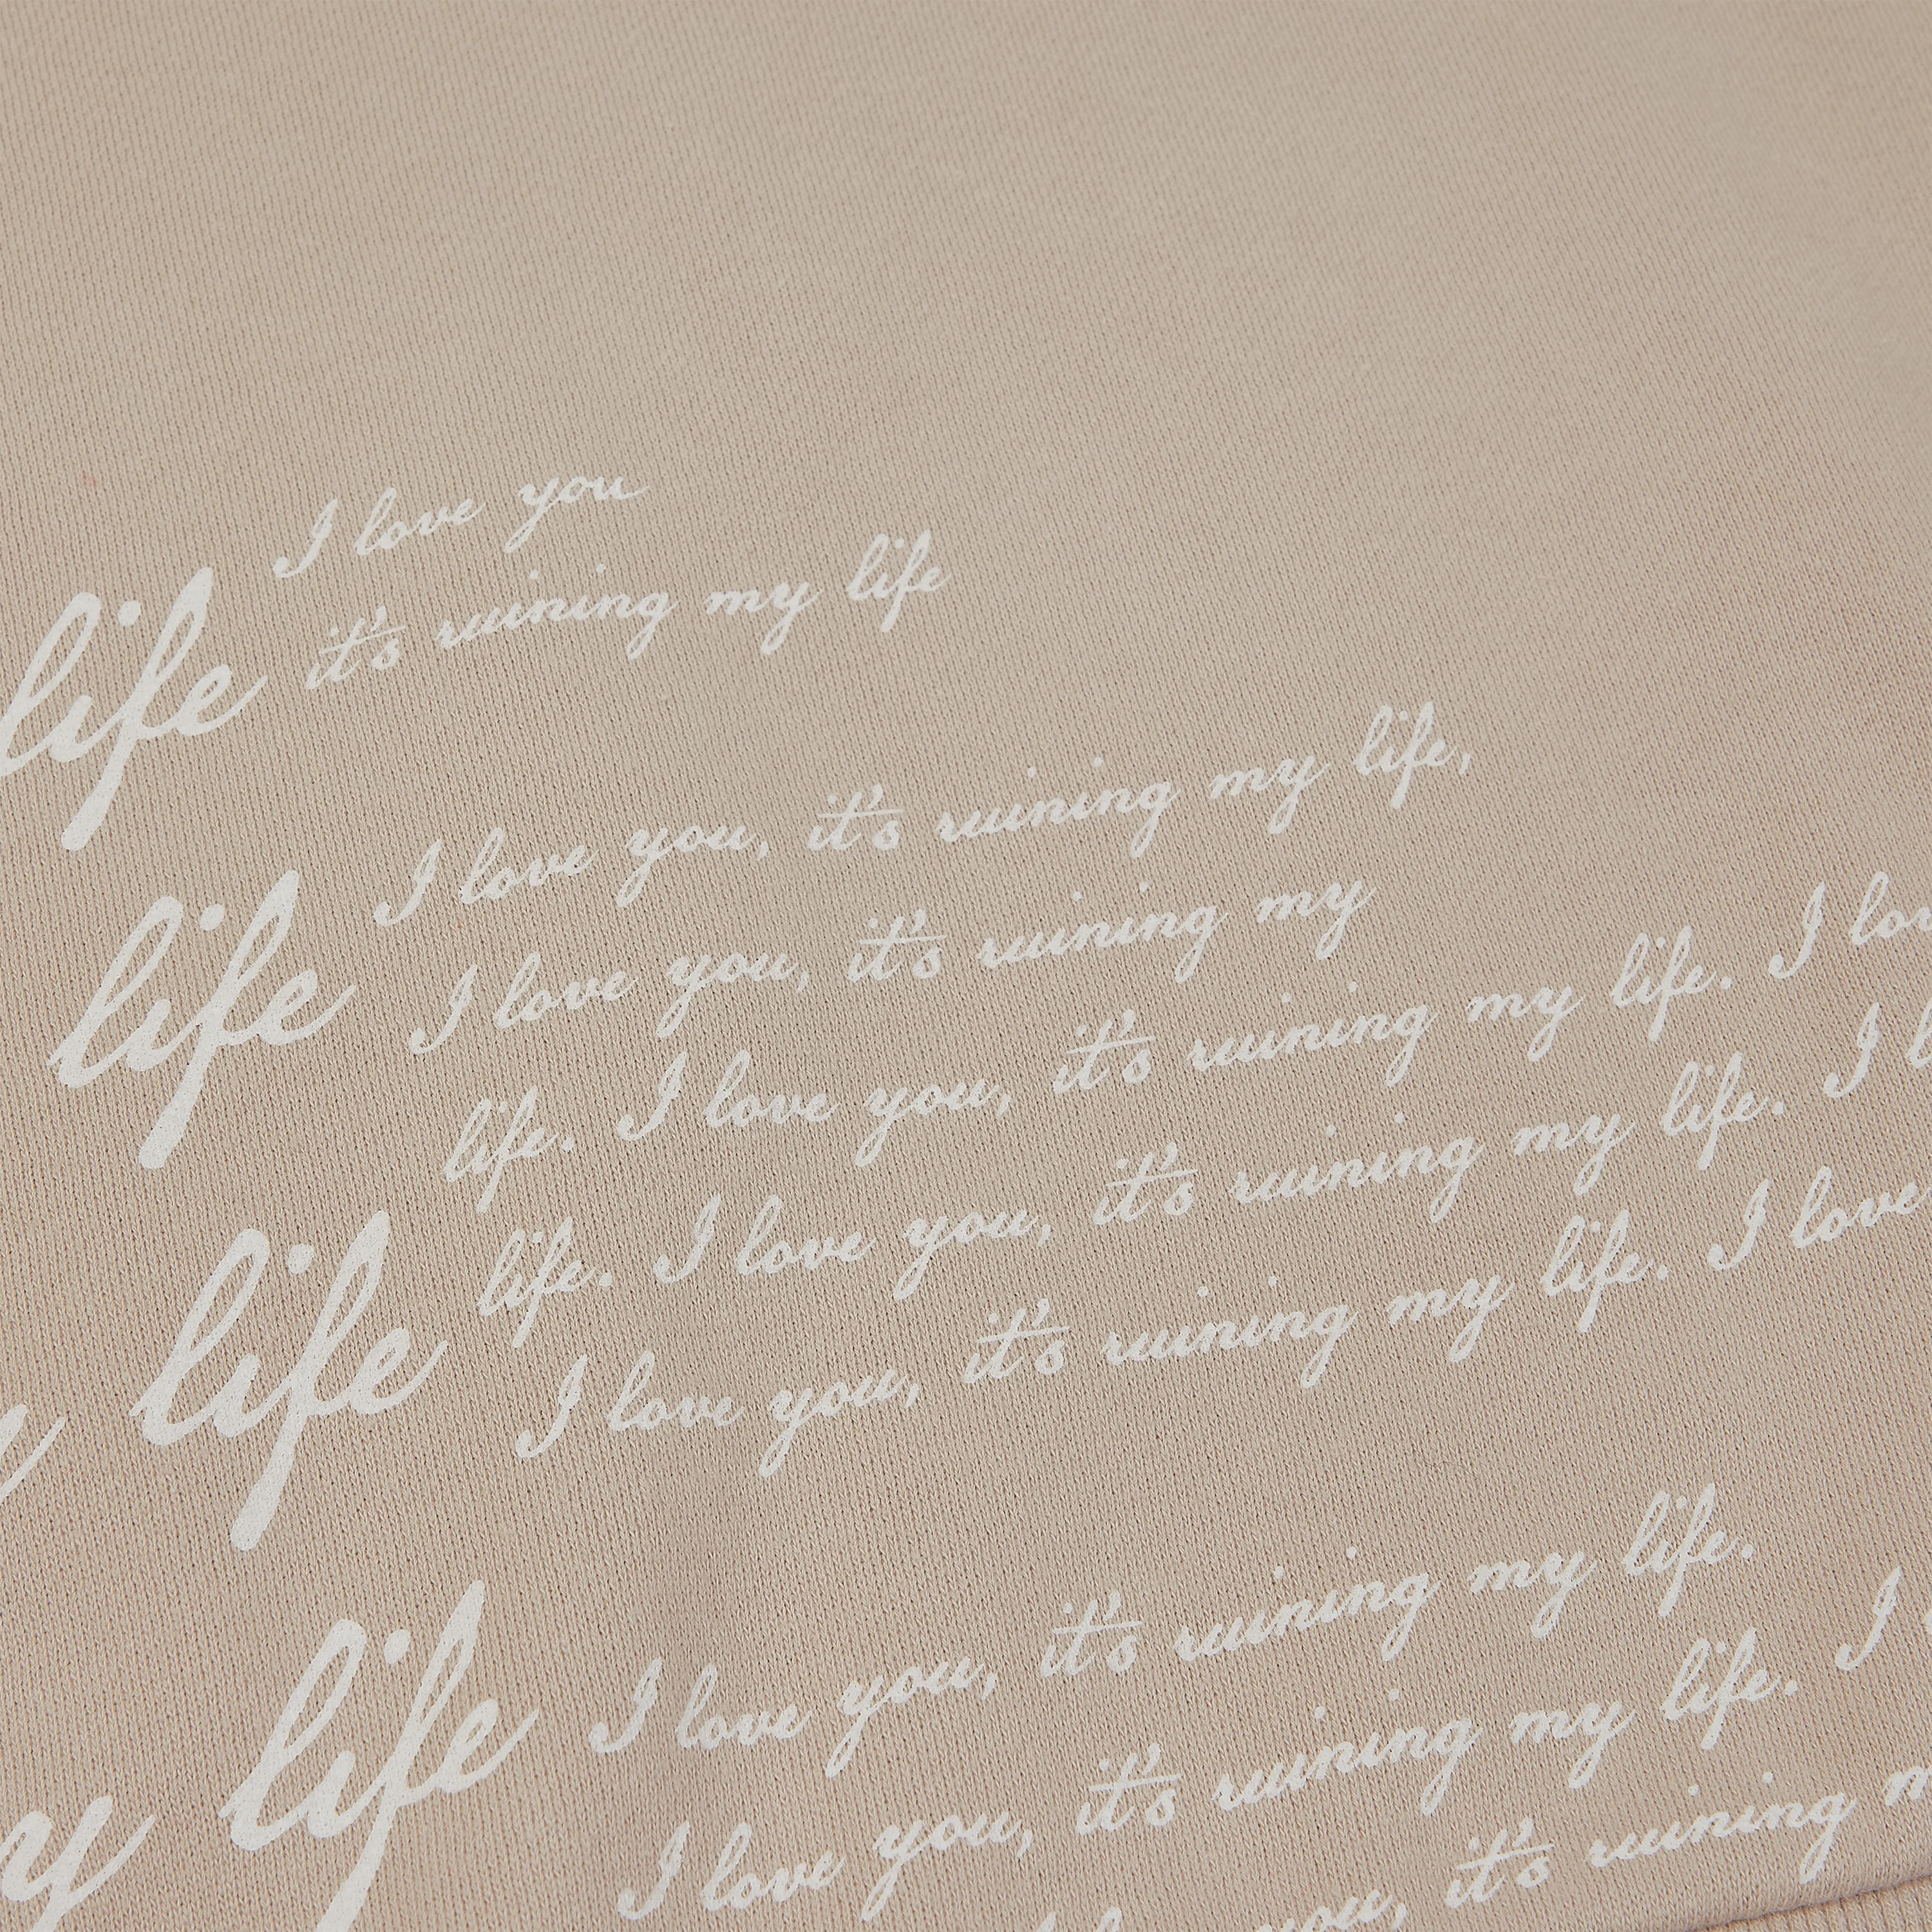 I love you
life it's ruining my life
I love you, it's ruining my life,
life I love you, it's ruining my
life. I love you, it's ruining my life. I
life. I love you, it's ruining my life. I
life
I love you, it's ruining my life. I love
I love you, it's ruining my life.
life
I love you, it's ruining my life. I
you, it's ruining